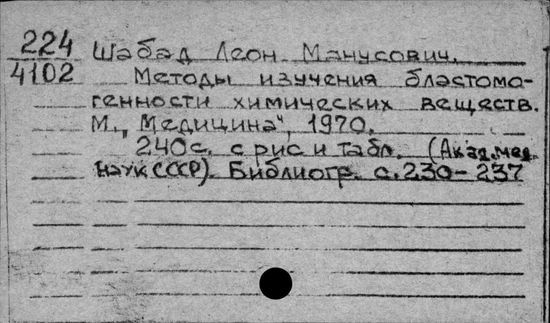 224 Шабад Леон Манусович.
4102 Методы изучения бластомо-
генности химических веществ.
М., „Медицина", 1970.
240с. с рис и табл. (Акад. мед.
наук СССР). Библиогр. с. 230-237